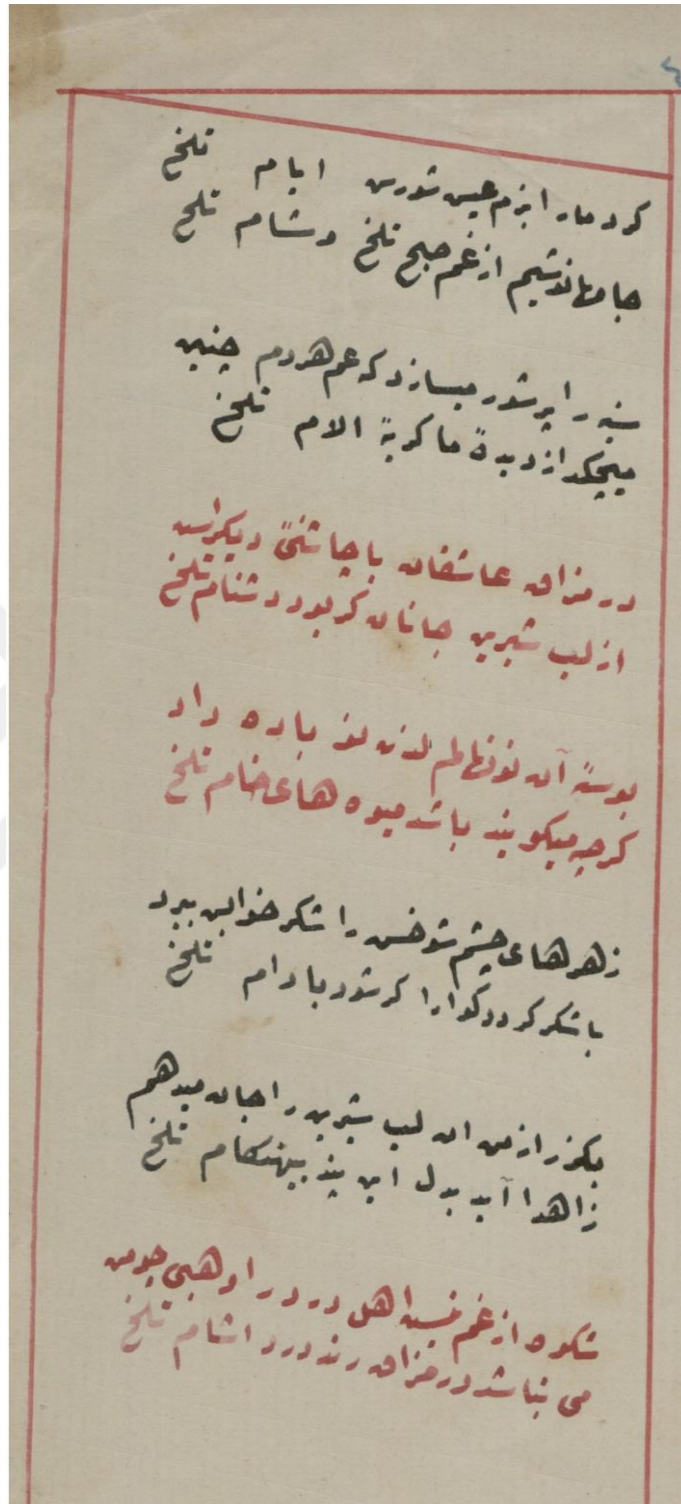 کرد مارا بزم عیش شورش ایام تلخ
جامها نوشیم از غم صبح تلخ و شام تلخ
سینه را پر شور میسازد که غم هر دم چنین
میچکد از دیدهٔ ما کریهٔ الام تلخ
در مزاق عاشقان با چاشنیٔ دیکراست
از لب شیرین جانان کر بود دشنام تلخ
بوسهٔ آن نونهالم لذت نو باده داد
کرچه میکویند باشد میوه های خام تلخ
زهرهای چشم شوخش را شکر خوابی ببرد
با شکر کردد کوارا کر شود بادام تلخ
بکزر از من ان لب شیرین را جان میدهم
زاهدا آید بدل این پند بیهنکام تلخ
شکوه از غم نیست اهل درد را وهبی چو من
می نباشد در مزاق رند درد اشام تلخ